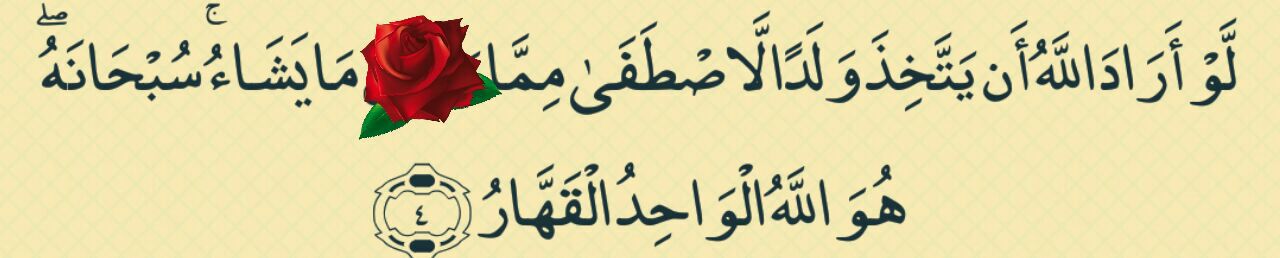 لَّوْ أَرَادَ اللَّهُ أَن يَتَّخِذَ وَلَدًا لَّاصْطَفَىٰ مِمَّا مَا يَشَاءُ ۚ سُبْحَانَهُ ۖ
هُوَ اللَّهُ الْوَاحِدُ الْقَهَّارُ ٤